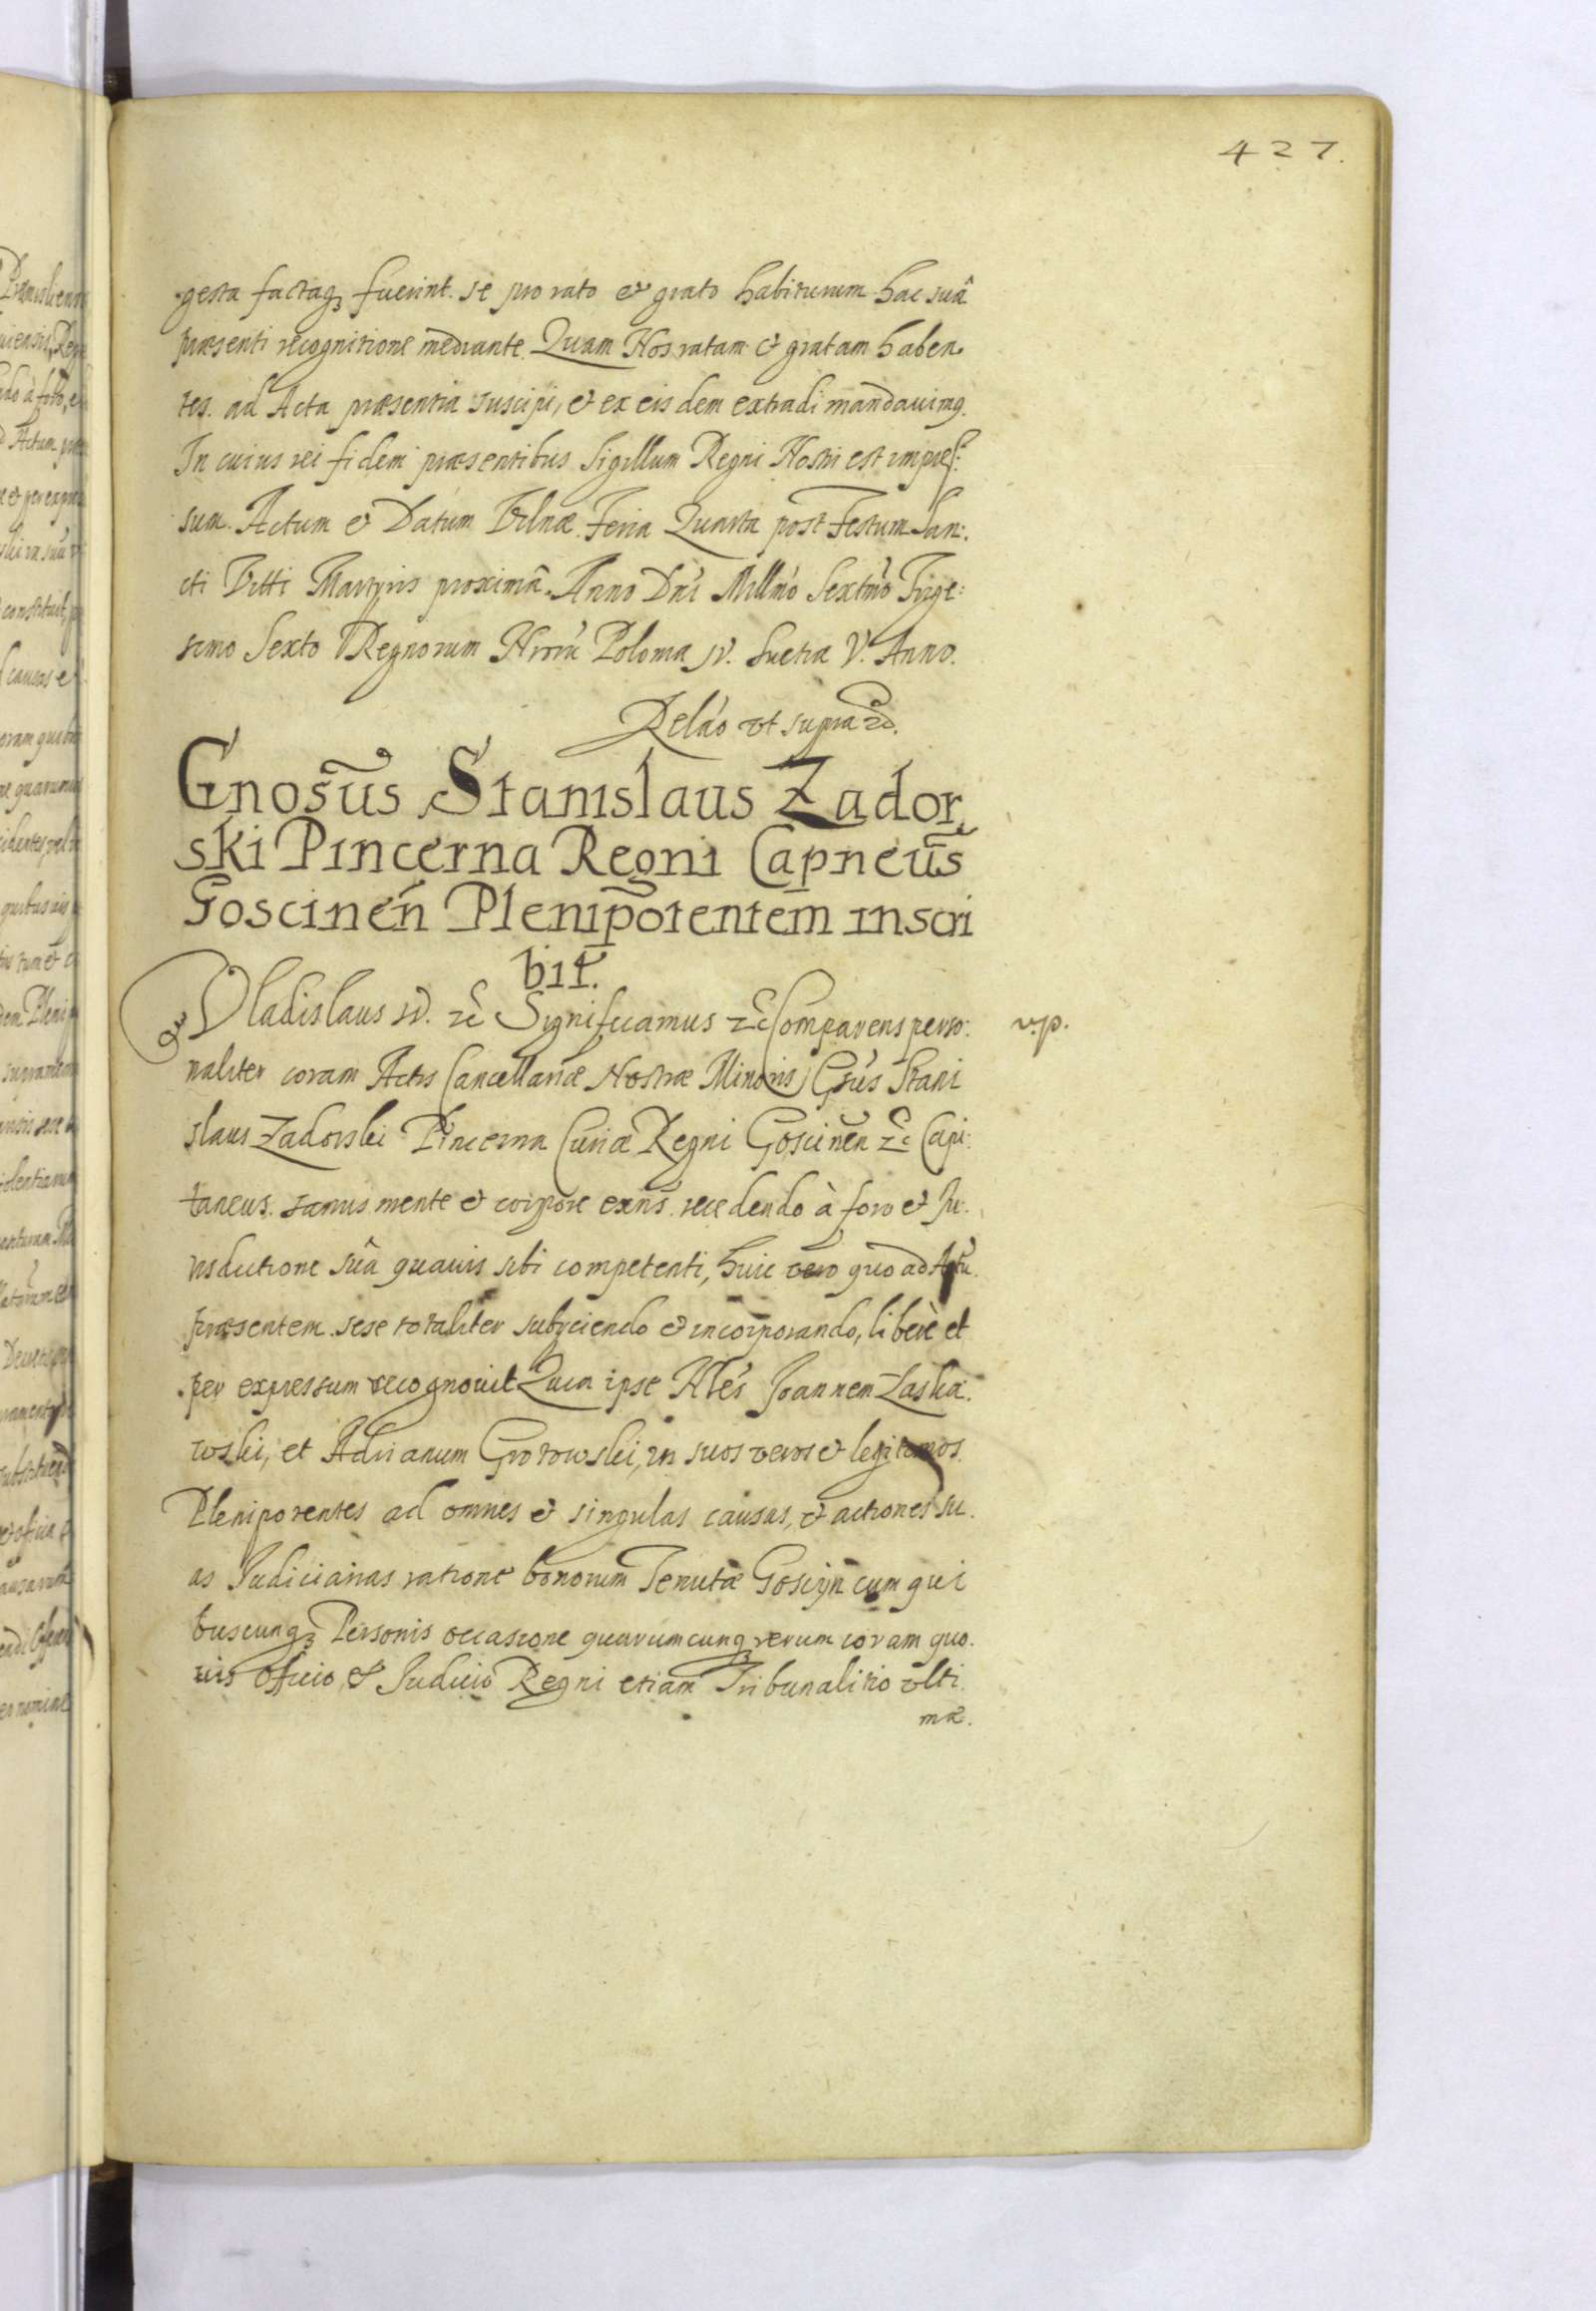 427.
gesta factaq₃ fuerint. se pro rato et grato habiturum hac suâ
præsenti recognitione mediante. Quam Nos ratam et gratam haben-
tes. ad Acta præsentia suscipi, et ex eisdem extradi mandauimq.
In cuius rei fidem præsentibus Sigillum Regni Nostri est impres:
sum. Actum et Datum Vilnæ. Feria Quarta post Festum San:
cti Vitti Martyris proximâ. Anno Dni Millmo Sextmo Trige:
simo Sexto Regnorum Nrorũ Poloniæ IV. Suetiæ V. Anno.
Relao vt supra
Gnosus Stanislaus Zador,
ski Pincerna Regni Capneus
Goscinen Plenipotentem inscri
bit.
Vladislaus IV. zc Significamus zc Comparens perso: v.p.
naliter coram Actis Cancellariæ Nostræ Minoris Gsus Stani
slaus Zadorski Pincerna Curiæ Regni Goscinen zc Capi:
taneus. sanus mente et corpore exns. recedendo à foro et Ju.
risdictione suâ quauis sibi competenti, huic vero quo ad Actũ
præsentem sese totaliter subijciendo et incorporando, liberè et
per expressum recognouit Quia ipse Nbles Joannem Laska.
wski, et Adrianum Grotowski, in suos veros et legitimos.
Plenipotentes ad omnes et singulas causas, et actiones su.
as Judiciarias ratione bonorum Tenutæ Goscijn cum qui
buscunq₃ Personis occasione quarumcunq₃ rerum coram quo.
uis Officio, et Judicio Regni etiam Tribunalitio vlti
mæ.